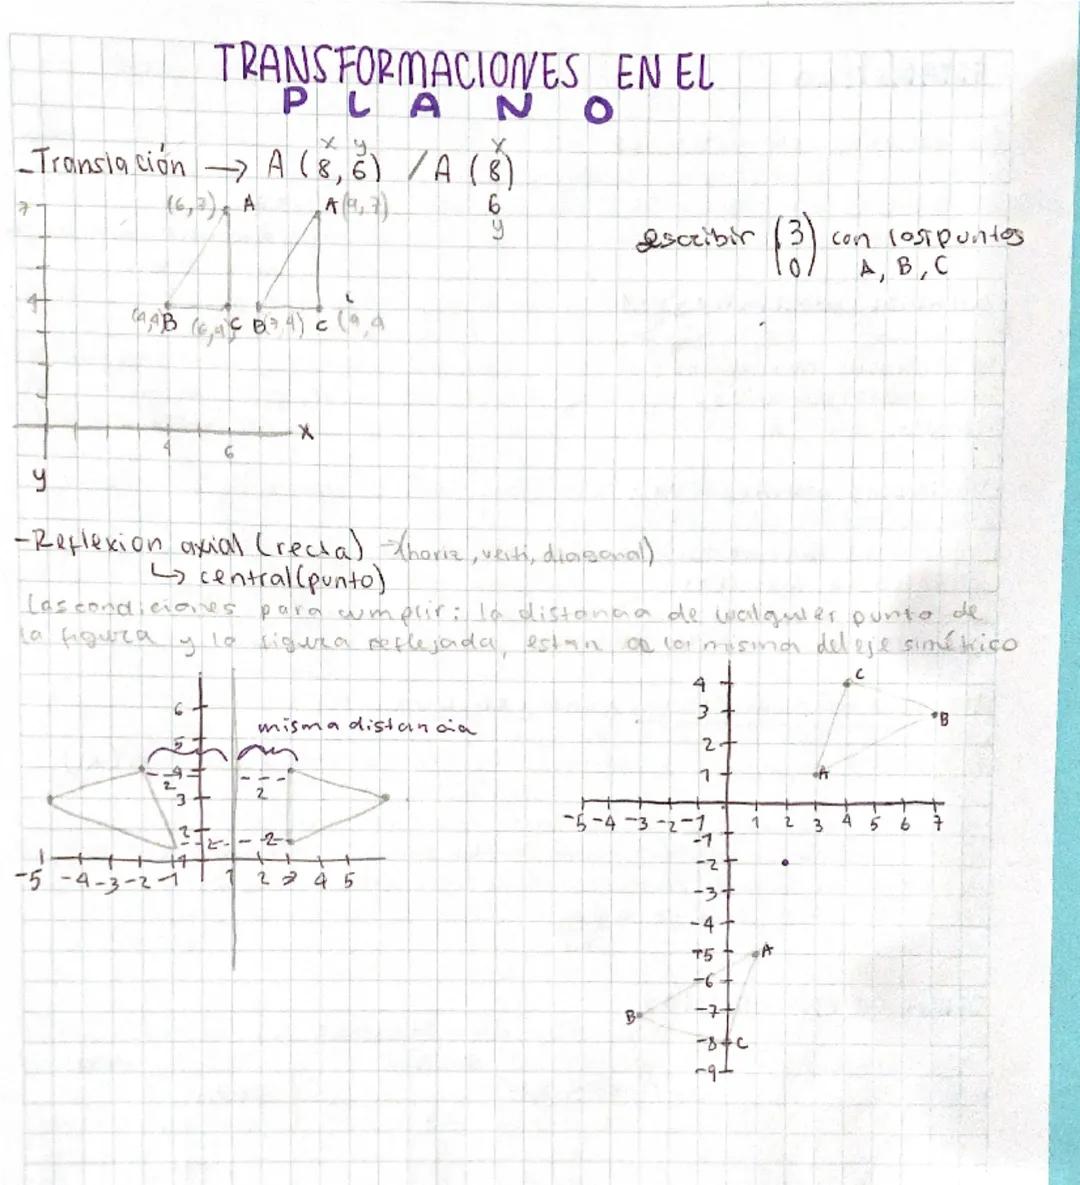 TRANSFORMACIONES EN EL
PLANO
x y x
-Translación → A (8,6) / A (8)
6
y
(6,7) A A (9,7)
7
escribir (3) con los puntos
(0) A, B, C
4
(4,4)B (6,4)C B(7,4) C (9,4
x
4 6
y
-Reflexion axial (recta) → (horiz, verti, diagonal)
↳ central (punto)
Las condiciones para cumplir: la distancia de cualquier punto de
la figura y la figura reflejada, estan a la misma del eje simétrico
6
misma distancia
5
4
2 2
3
2
2 2
1
-5 -4 -3 -2 -1 1 2 3 4 5
4 C
3 B
2
1 A
-5 -4 -3 -2 -1 1 2 3 4 5 6 7
-1
-2
-3
-4
-5 A
-6
B -7
-8 C
-9